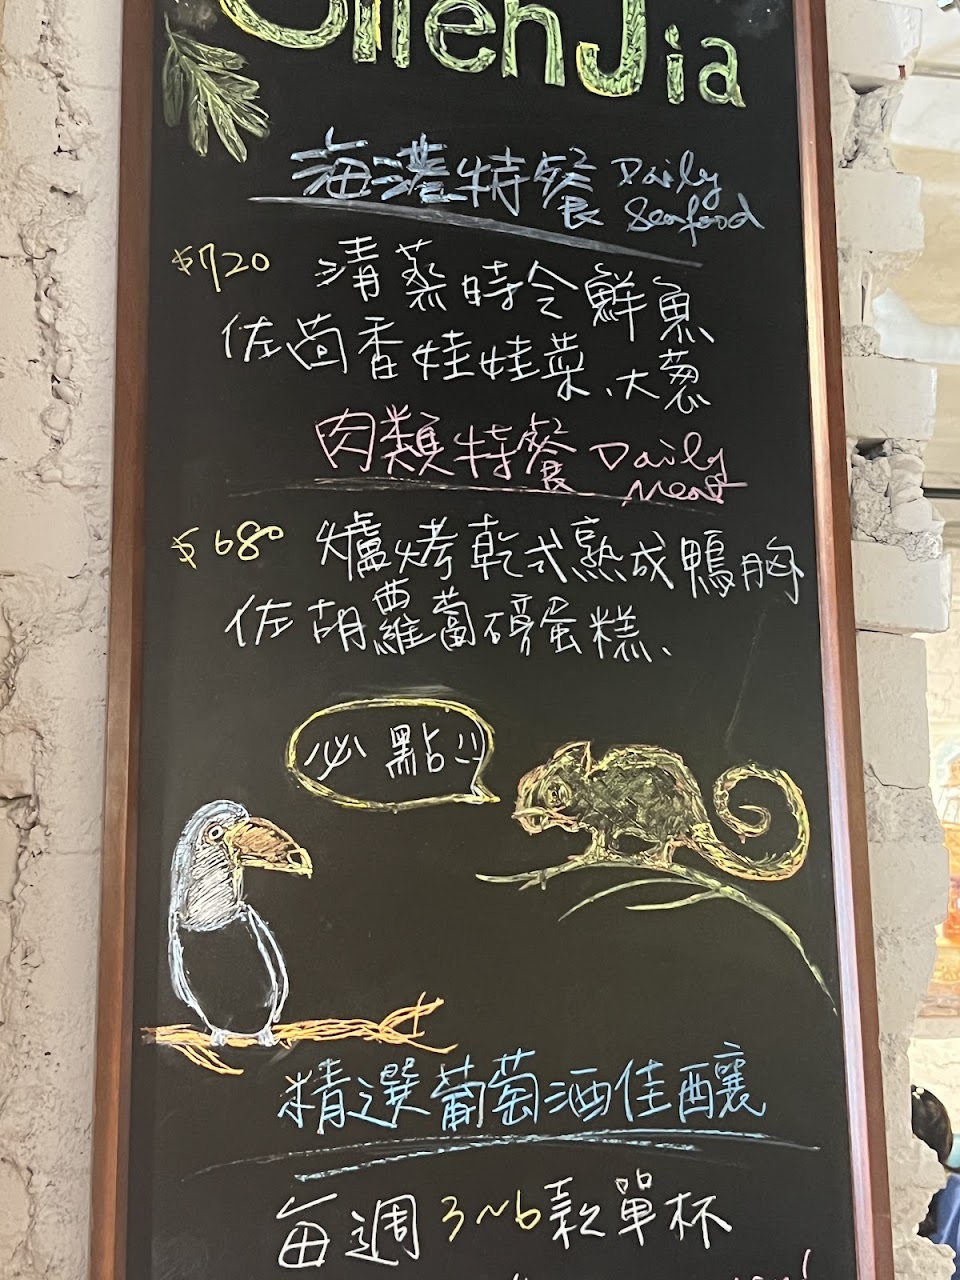 Jia
海港特餐 Daily Seafood
$720 清蒸時令鮮魚
佐茴香娃娃菜、大蔥
肉類特餐 Daily Meat
$680 爐烤乾式熟成鴨胸
佐胡蘿蔔磅蛋糕、
必點!!
精選葡萄酒佳釀
每週3~6款單杯